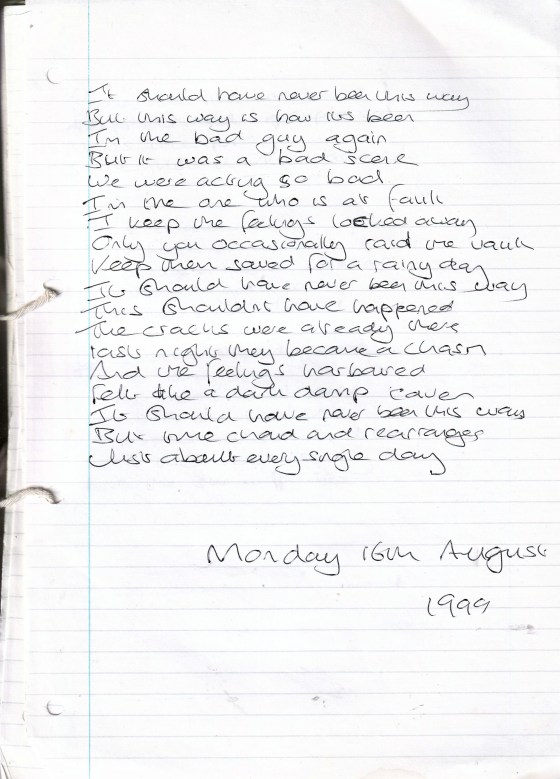 It should have never been this way
But this way is how its been
I'm the bad guy again
But it was a bad scene
We were acting so bad
I'm the one who is at fault
I keep the feelings locked away
Only you occasionally raid the vault
Keep them saved for a rainy day
It should have never been this way
This shouldnt have happened
The cracks were already there
last night they became a chasm
And the feelings harboured
Felt like a dark damp cavern
It should have never been this way
But time and rearranges
Just about every single day
Monday 16th August
1999